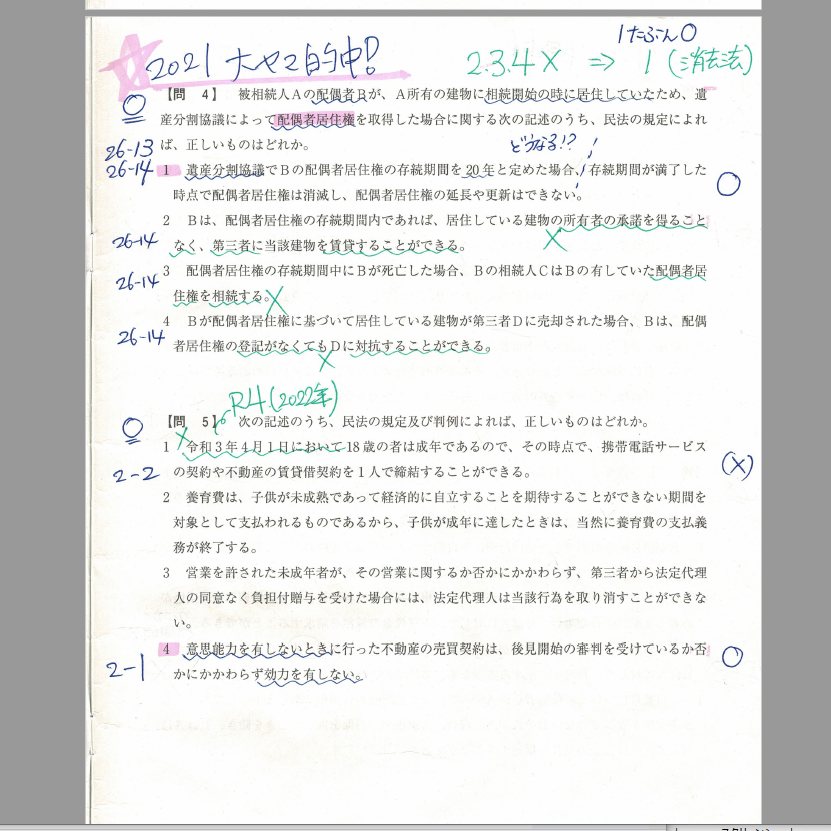 2021 大ヤマ的中!?
1たぶん○
2.3.4 X ⇒ 1 (消去法)
【問 4】 被相続人Aの配偶者Bが、A所有の建物に相続開始の時に居住していたため、遺
産分割協議によって配偶者居住権を取得した場合に関する次の記述のうち、民法の規定によれ
ば、正しいものはどれか。
どうなる!?
26-13
26-14
1 遺産分割協議でBの配偶者居住権の存続期間を20年と定めた場合、存続期間が満了した
時点で配偶者居住権は消滅し、配偶者居住権の延長や更新はできない。
2 Bは、配偶者居住権の存続期間内であれば、居住している建物の所有者の承諾を得ること
26-14
なく、第三者に当該建物を賃貸することができる。
3 配偶者居住権の存続期間中にBが死亡した場合、Bの相続人CはBの有していた配偶者居
26-14
住権を相続する。
4 Bが配偶者居住権に基づいて居住している建物が第三者Dに売却された場合、Bは、配偶
26-14
者居住権の登記がなくてもDに対抗することができる。
R4(2022年)
【問 5】 次の記述のうち、民法の規定及び判例によれば、正しいものはどれか。
1 令和3年4月1日において18歳の者は成年であるので、その時点で、携帯電話サービス
2-2
の契約や不動産の賃貸借契約を1人で締結することができる。
(X)
2 養育費は、子供が未成熟であって経済的に自立することを期待することができない期間を
対象として支払われるものであるから、子供が成年に達したときは、当然に養育費の支払義
務が終了する。
3 営業を許された未成年者が、その営業に関するか否かにかかわらず、第三者から法定代理
人の同意なく負担付贈与を受けた場合には、法定代理人は当該行為を取り消すことができな
い。
4 意思能力を有しないときに行った不動産の売買契約は、後見開始の審判を受けているか否
2-1
かにかかわらず効力を有しない。